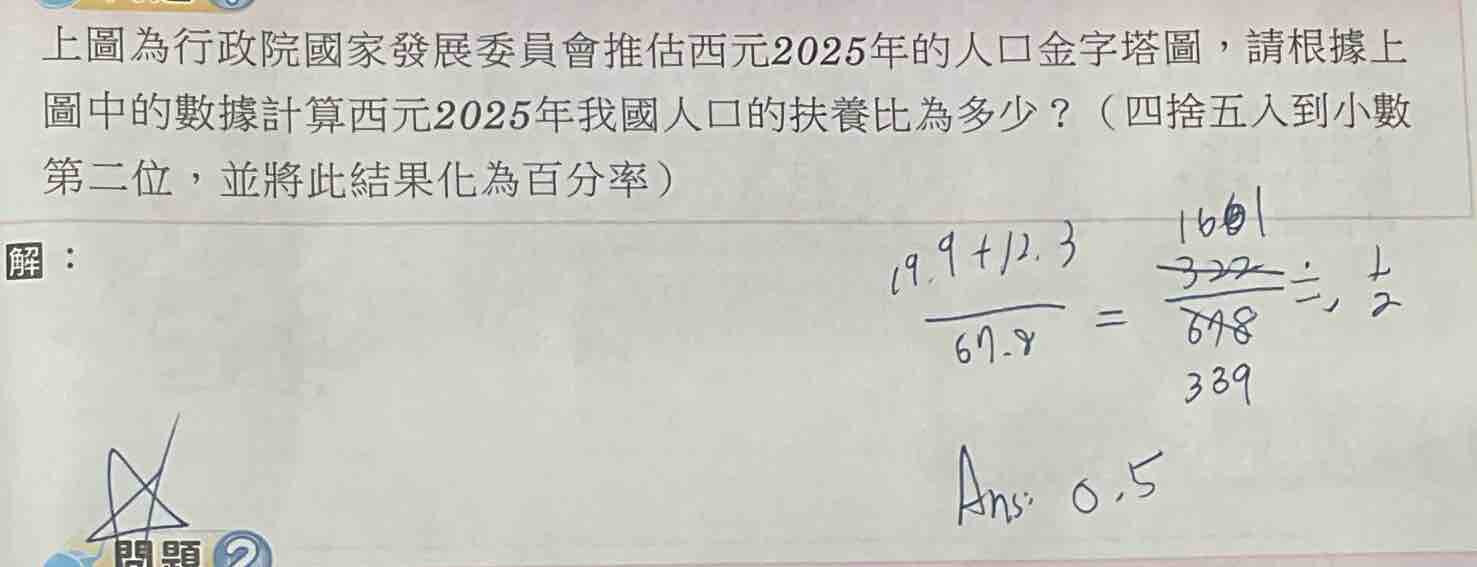 上圖為行政院國家發展委員會推估西元2025年的人口金字塔圖，請根據上
圖中的數據計算西元2025年我國人口的扶養比為多少？（四捨五入到小數
第二位，並將此結果化為百分率）
解：
19.9+12.3 / 67.8 = 322 / 678 ÷ 1/2
161
339
Ans: 0.5
問題2